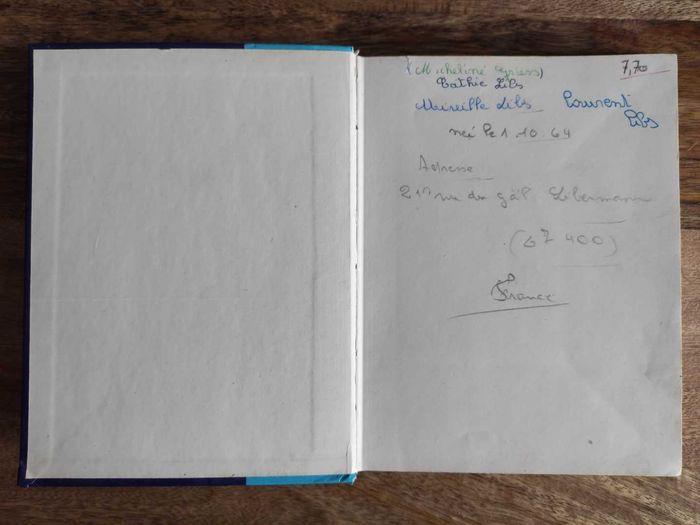 (Micheline Gyless) 7,70
Cathie Libs
Mireille Libs Laurent
Libs
née le 1.10.64
Adresse
21 rue du gal Libermann
(67 400)
France